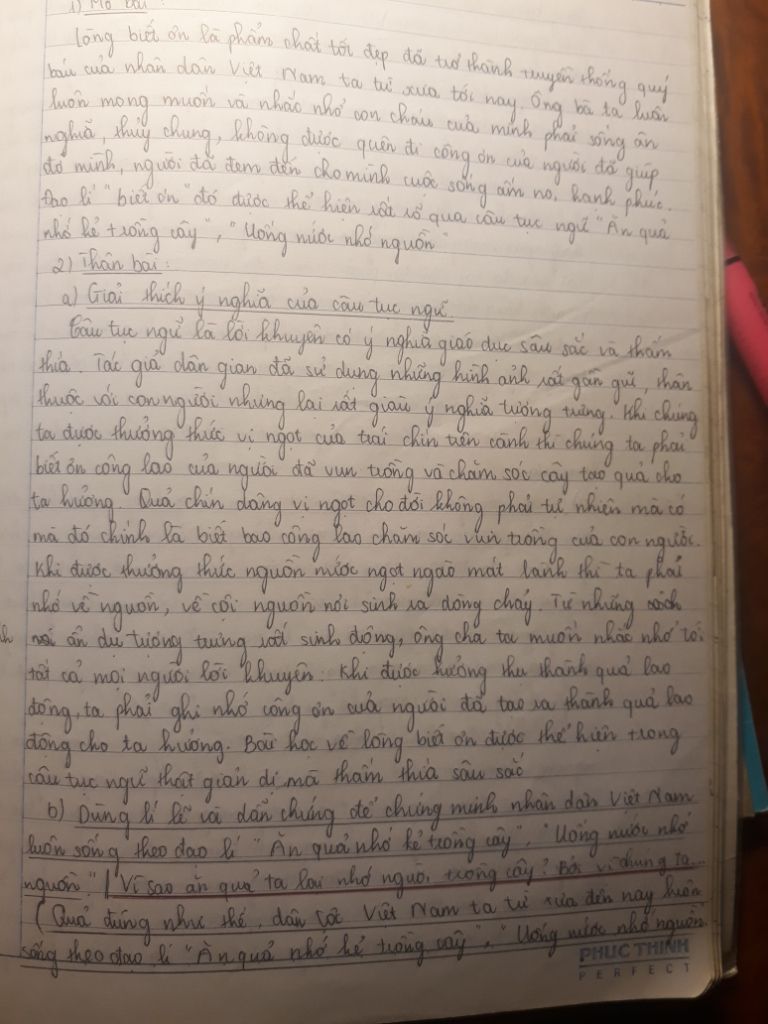 1) Mở bài :
Lòng biết ơn là phẩm chất tốt đẹp đã trở thành truyền thống quý
báu của nhân dân Việt Nam ta từ xưa tới nay. Ông bà ta luôn
luôn mong muốn và nhắc nhở con cháu của mình phải sống ân
nghĩa, thủy chung, không được quên đi công ơn của người đã giúp
đỡ mình, người đã đem đến cho mình cuộc sống ấm no, hạnh phúc.
Đạo lí "biết ơn" đó được thể hiện rất rõ qua câu tục ngữ "Ăn quả
nhớ kẻ trồng cây", "Uống nước nhớ nguồn"
2) Thân bài :
a) Giải thích ý nghĩa của câu tục ngữ.
Câu tục ngữ là lời khuyên có ý nghĩa giáo dục sâu sắc và thấm
thía. Tác giả dân gian đã sử dụng những hình ảnh rất gần gũi, thân
thuộc với con người nhưng lại rất giàu ý nghĩa tượng trưng. Khi chúng
ta được thưởng thức vị ngọt của trái chín trên cành thì chúng ta phải
biết ơn công lao của người đã vun trồng và chăm sóc cây tạo quả cho
ta hưởng. Quả chín dâng vị ngọt cho đời không phải tự nhiên mà có
mà đó chính là biết bao công lao chăm sóc vun trồng của con người.
Khi được thưởng thức nguồn nước ngọt ngào mát lành thì ta phải
nhớ về nguồn, về cội nguồn nơi sinh ra dòng chảy. Từ những cách
nói ẩn dụ tượng trưng rất sinh động, ông cha ta muốn nhắc nhở tới
tất cả mọi người lời khuyên: Khi được hưởng thụ thành quả lao
động, ta phải ghi nhớ công ơn của người đã tạo ra thành quả lao
động cho ta hưởng. Bài học về lòng biết ơn được thể hiện trong
câu tục ngữ thật giản dị mà thấm thía sâu sắc
b) Dùng lí lẽ và dẫn chứng để chứng minh nhân dân Việt Nam
luôn sống theo đạo lí "Ăn quả nhớ kẻ trồng cây", "Uống nước nhớ
nguồn" / Vì sao ăn quả ta lại nhớ người trồng cây? Bởi vì chúng ta...
(Quả đúng như thế, dân tộc Việt Nam ta từ xưa đến nay luôn
sống theo đạo lí "Ăn quả nhớ kẻ trồng cây", "Uống nước nhớ nguồn.
PHUC THINH
PERFECT